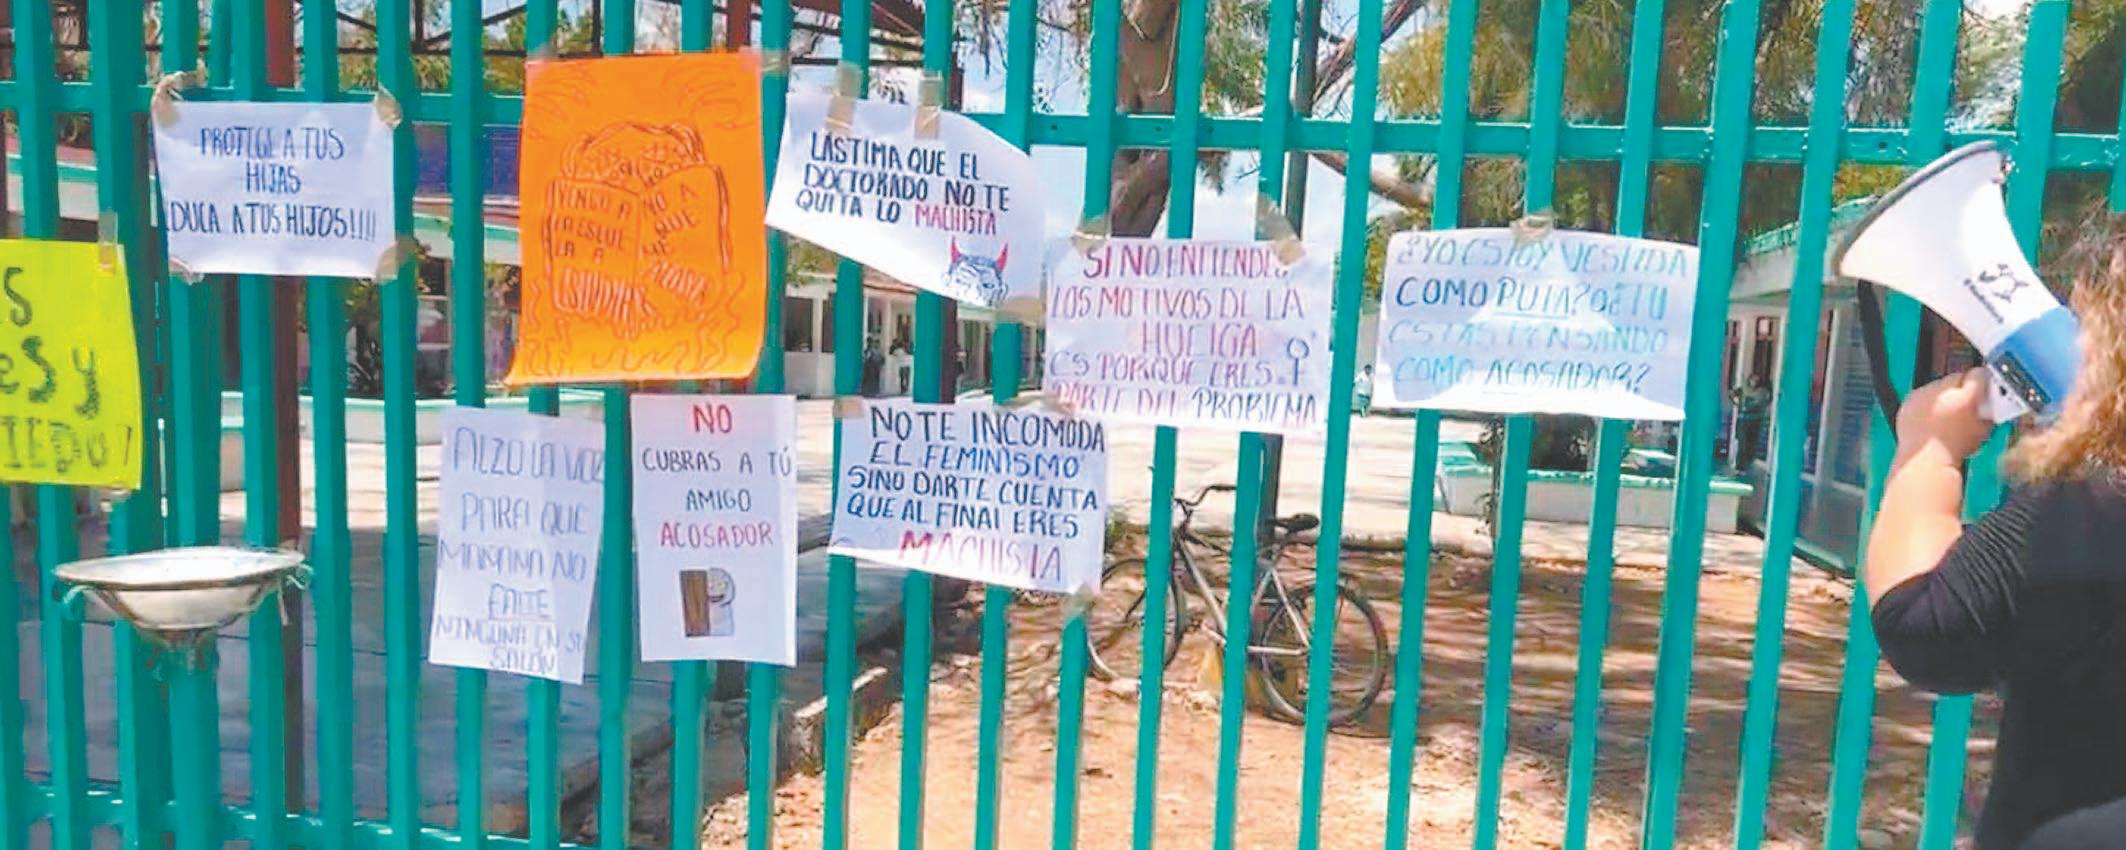 PROTEGE A TUS
HIJAS
EDUCA A TUS HIJOS!!!!
S
eS y
MIEDO!
VENGO A
LA ESCUE
LA A
ESTUDIAR
NO A
QUE
ME
ACOSEN
LÁSTIMA QUE EL
DOCTORADO NO TE
QUITA LO MACHISTA
SI NO ENTIENDES
LOS MOTIVOS DE LA
HUELGA
ES PORQUE ERES
PARTE DEL PROBLEMA
¿YO ESTOY VESTIDA
COMO PUTA? O ¿TU
ESTAS PENSANDO
COMO ACOSADOR?
ALZO LA VOZ
PARA QUE
MAÑANA NO
FALTE
NINGUNA EN SU
SALÓN
NO
CUBRAS A TÚ
AMIGO
ACOSADOR
NO TE INCOMODA
EL FEMINISMO
SINO DARTE CUENTA
QUE AL FINAL ERES
MACHISTA